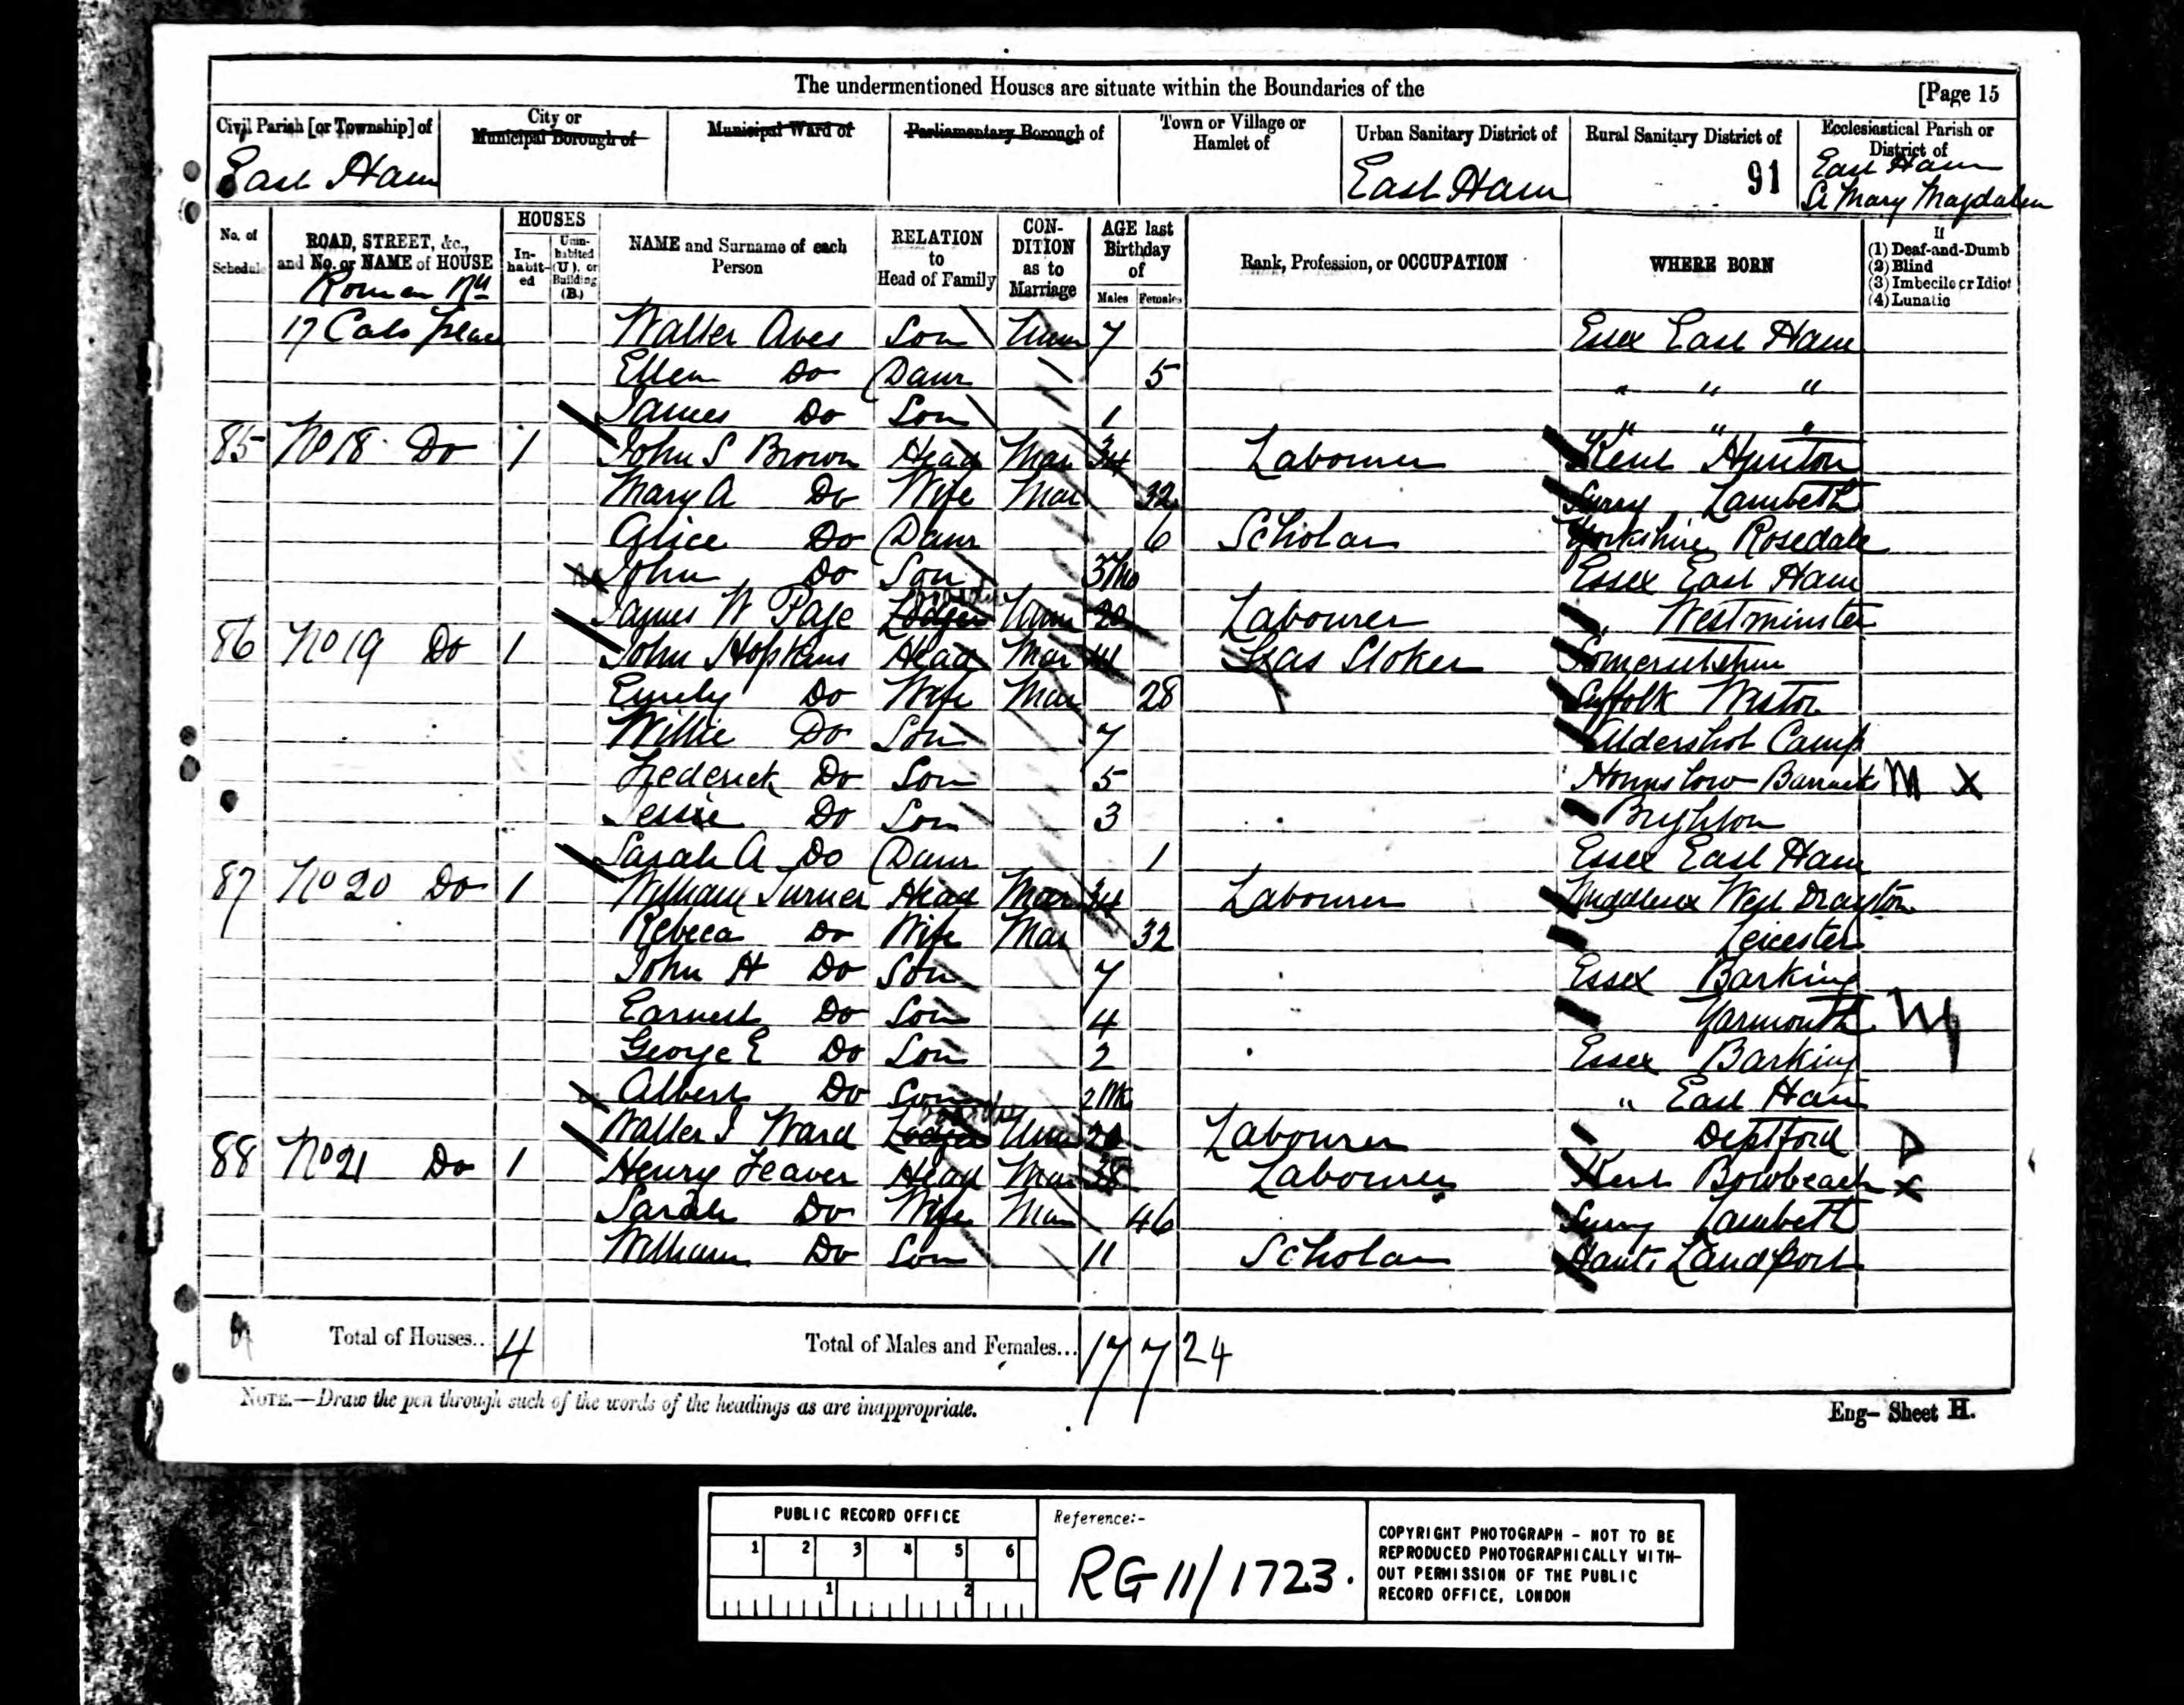 The undermentioned Houses are situate within the Boundaries of the [Page 15
Civil Parish [or Township] of City or Municipal Borough of Municipal Ward of Parliamentary Borough of Town or Village or Hamlet of Urban Sanitary District of Rural Sanitary District of Ecclesiastical Parish or District of
East Ham East Ham 91 East Ham St Mary Magdalen
No. of Schedule ROAD, STREET, &c., and No. or NAME of HOUSE HOUSES Inhabited Uninhabited (U). or Building (B.) NAME and Surname of each Person RELATION to Head of Family CONDITION as to Marriage AGE last Birthday of Males Females Rank, Profession, or OCCUPATION WHERE BORN If (1) Deaf-and-Dumb (2) Blind (3) Imbecile or Idiot (4) Lunatic
Roman Rd
17 Cals place Walter Aves Son Unm 7 Essex East Ham
Ellen Do Daur 5 " " "
James Do Son 1 " " "
85 No 18 Do 1 John S Brown Head Mar 34 Labourer Kent Hunton
Mary A Do Wife Mar 32 Surry Lambeth
Alice Do Daur 6 Scholar Yorkshire Rosedale
John Do Son 3Mo Essex East Ham
James W Page Lodger Unm 20 Labourer " Westminster
86 No 19 Do 1 John Hopkins Head Mar 41 Gas Stoker Somersetshire
Emily Do Wife Mar 28 Suffolk Weston
Willie Do Son 7 Aldershot Camp
Frederick Do Son 5 Hounslow Barracks M X
Jessie Do Son 3 Brighton
Sarah A Do Daur 1 Essex East Ham
87 No 20 Do 1 William Turner Head Mar 34 Labourer Middlesex West Drayton
Rebeca Do Wife Mar 32 Leicester
John H Do Son 7 Essex Barking
Earnest Do Son 4 Yarmouth
George E Do Son 2 Essex Barking
Albert Do Son 2Mo " East Ham
Walter J Ward Lodger Unm 20 Labourer Deptford
88 No 21 Do 1 Henry Feaver Head Mar 38 Labourer Kent Bowbeach X
Sarah Do Wife Mar 46 Surry Lambeth
William Do Son 11 Scholar Hants Landport
Total of Houses.. 4 Total of Males and Females... 17 7 24
NOTE.—Draw the pen through such of the words of the headings as are inappropriate.
Eng- Sheet H.
PUBLIC RECORD OFFICE
1 2 3 4 5 6
1 2
Reference:-
RG 11/1723.
COPYRIGHT PHOTOGRAPH - NOT TO BE
REPRODUCED PHOTOGRAPHICALLY WITH-
OUT PERMISSION OF THE PUBLIC
RECORD OFFICE, LONDON